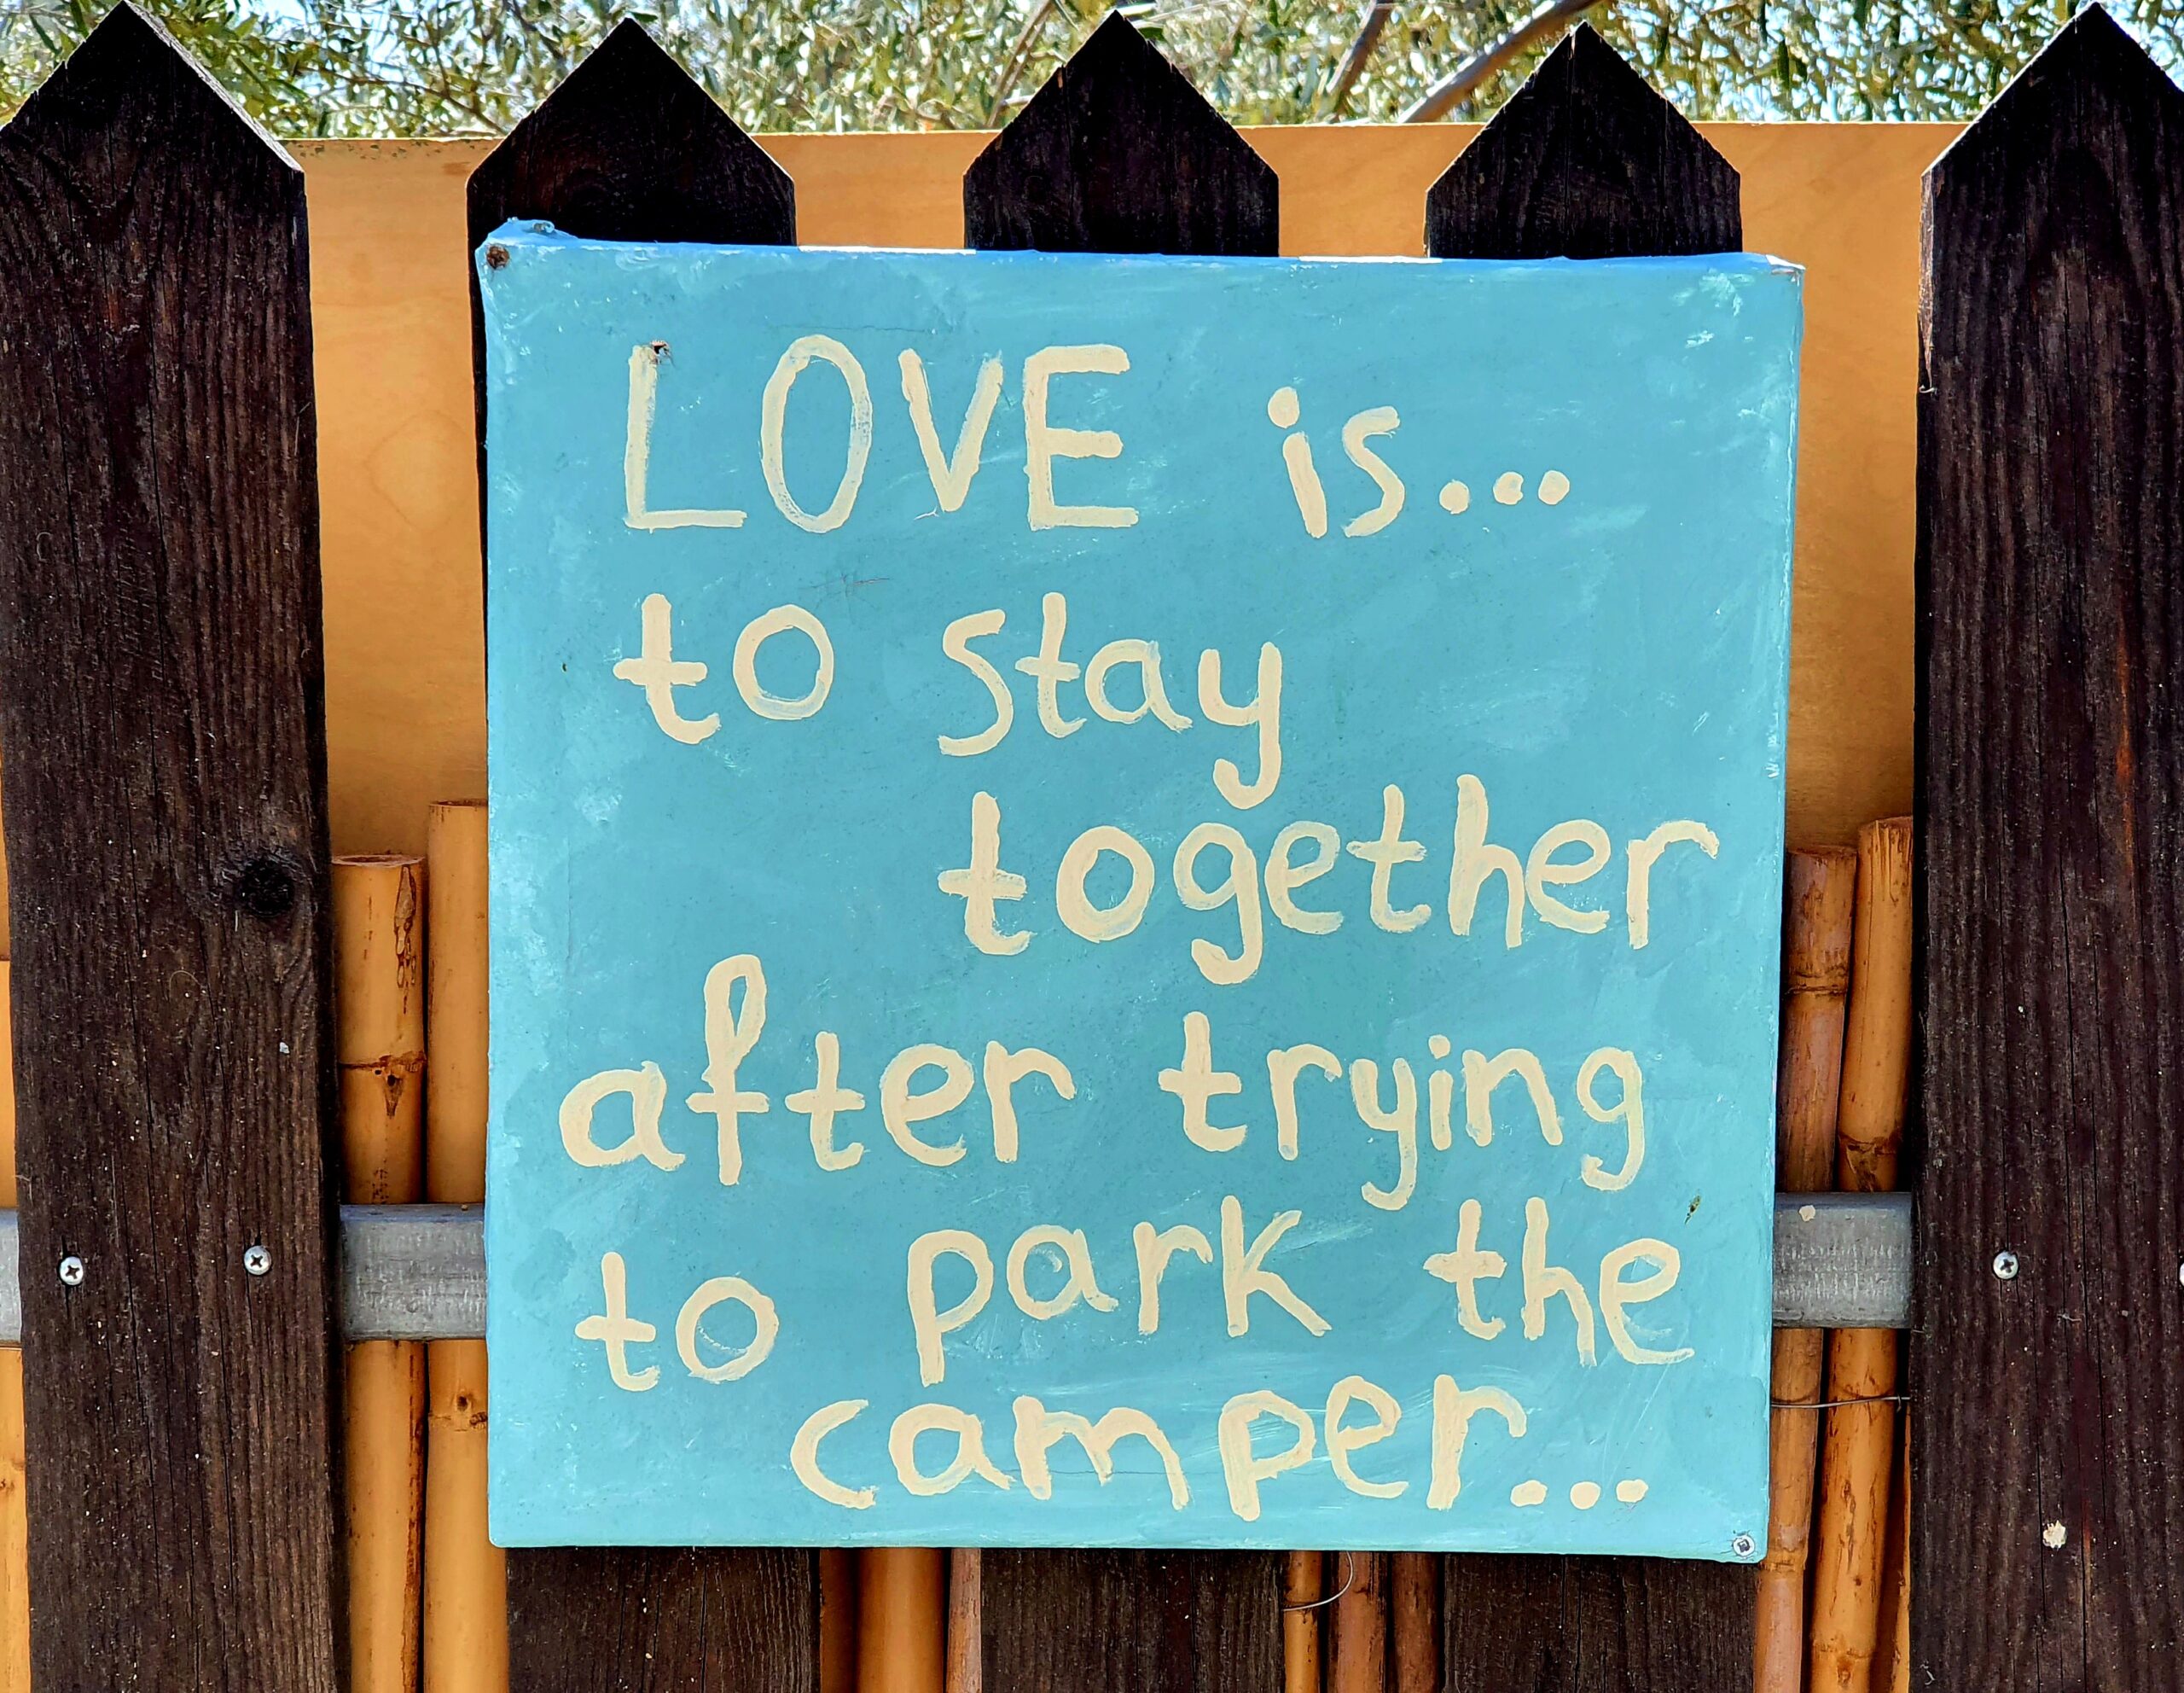 LOVE is...
to stay
together
after trying
to park the
camper...